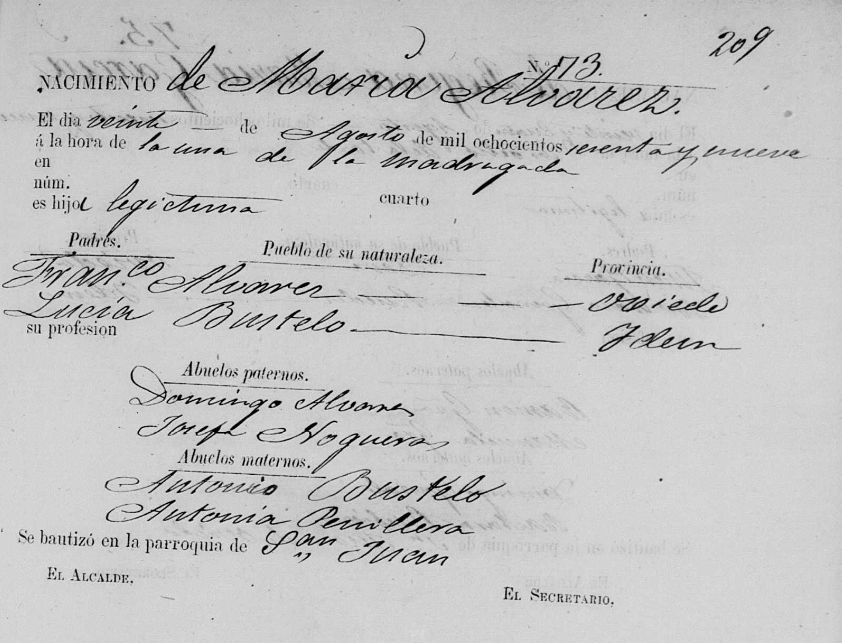 209
Nº 73.
NACIMIENTO de Maria Alvarez.
El dia veinte de Agosto de mil ochocientos sesenta y nueve
á la hora de la una de la madrugada
en
núm. cuarto
es hija legictima
Padres. Pueblo de su naturaleza. Provincia.
Fran.co Alvarez Oviedo
Lucía Bustelo Idem
su profesion
Abuelos paternos.
Domingo Alvarez
Josefa Noguera
Abuelos maternos.
Antonio Bustelo
Antonia Penillera
Se bautizó en la parroquia de San Juan
EL ALCALDE.
EL SECRETARIO.